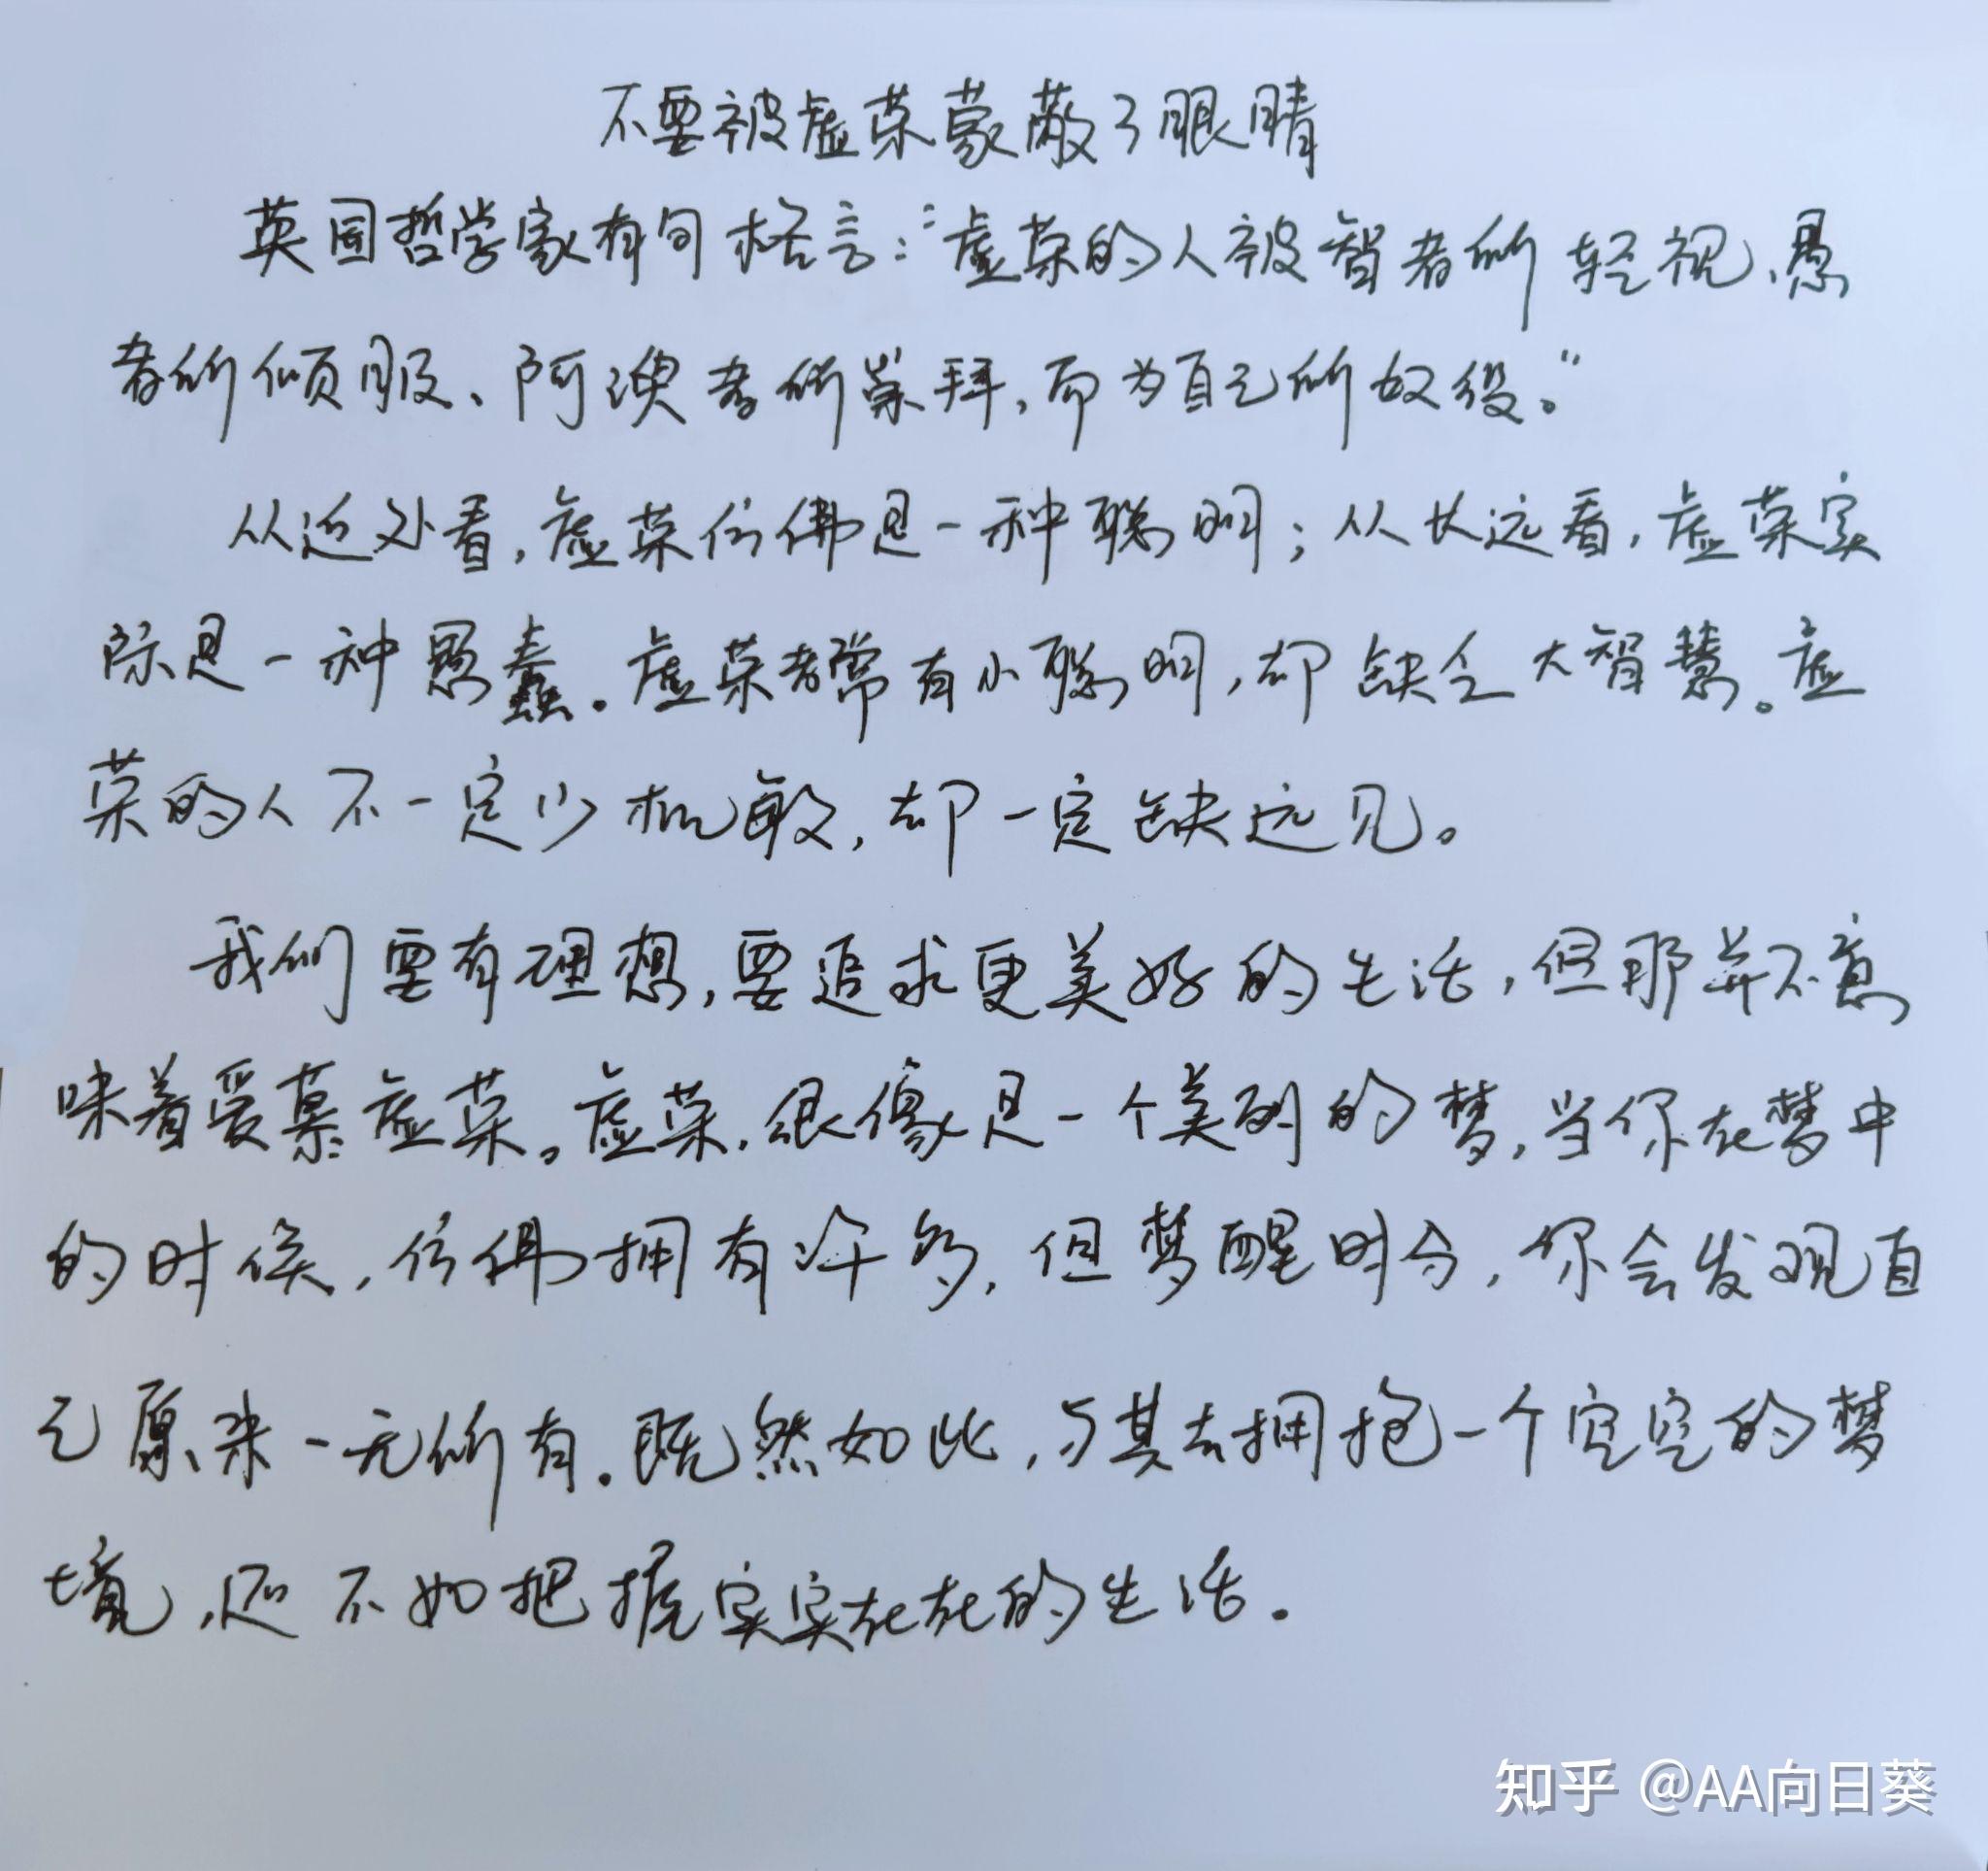 不要被虚荣蒙蔽了眼睛
英国哲学家有句格言：“虚荣的人被智者所轻视、愚
者所倾服、阿谀者所崇拜，而为自己所奴役。”
从近处看，虚荣仿佛是一种聪明；从长远看，虚荣实
际是一种愚蠢。虚荣者常有小聪明，却缺乏大智慧。虚
荣的人不一定少机敏，却一定缺远见。
我们要有理想，要追求更美好的生活，但那并不意
味着爱慕虚荣。虚荣，很像是一个美丽的梦，当你在梦中
的时候，仿佛拥有许多，但梦醒时分，你会发现自
己原来一无所有。既然如此，与其去拥抱一个空空的梦
境，还不如把握实实在在的生活。
知乎 @AA向日葵